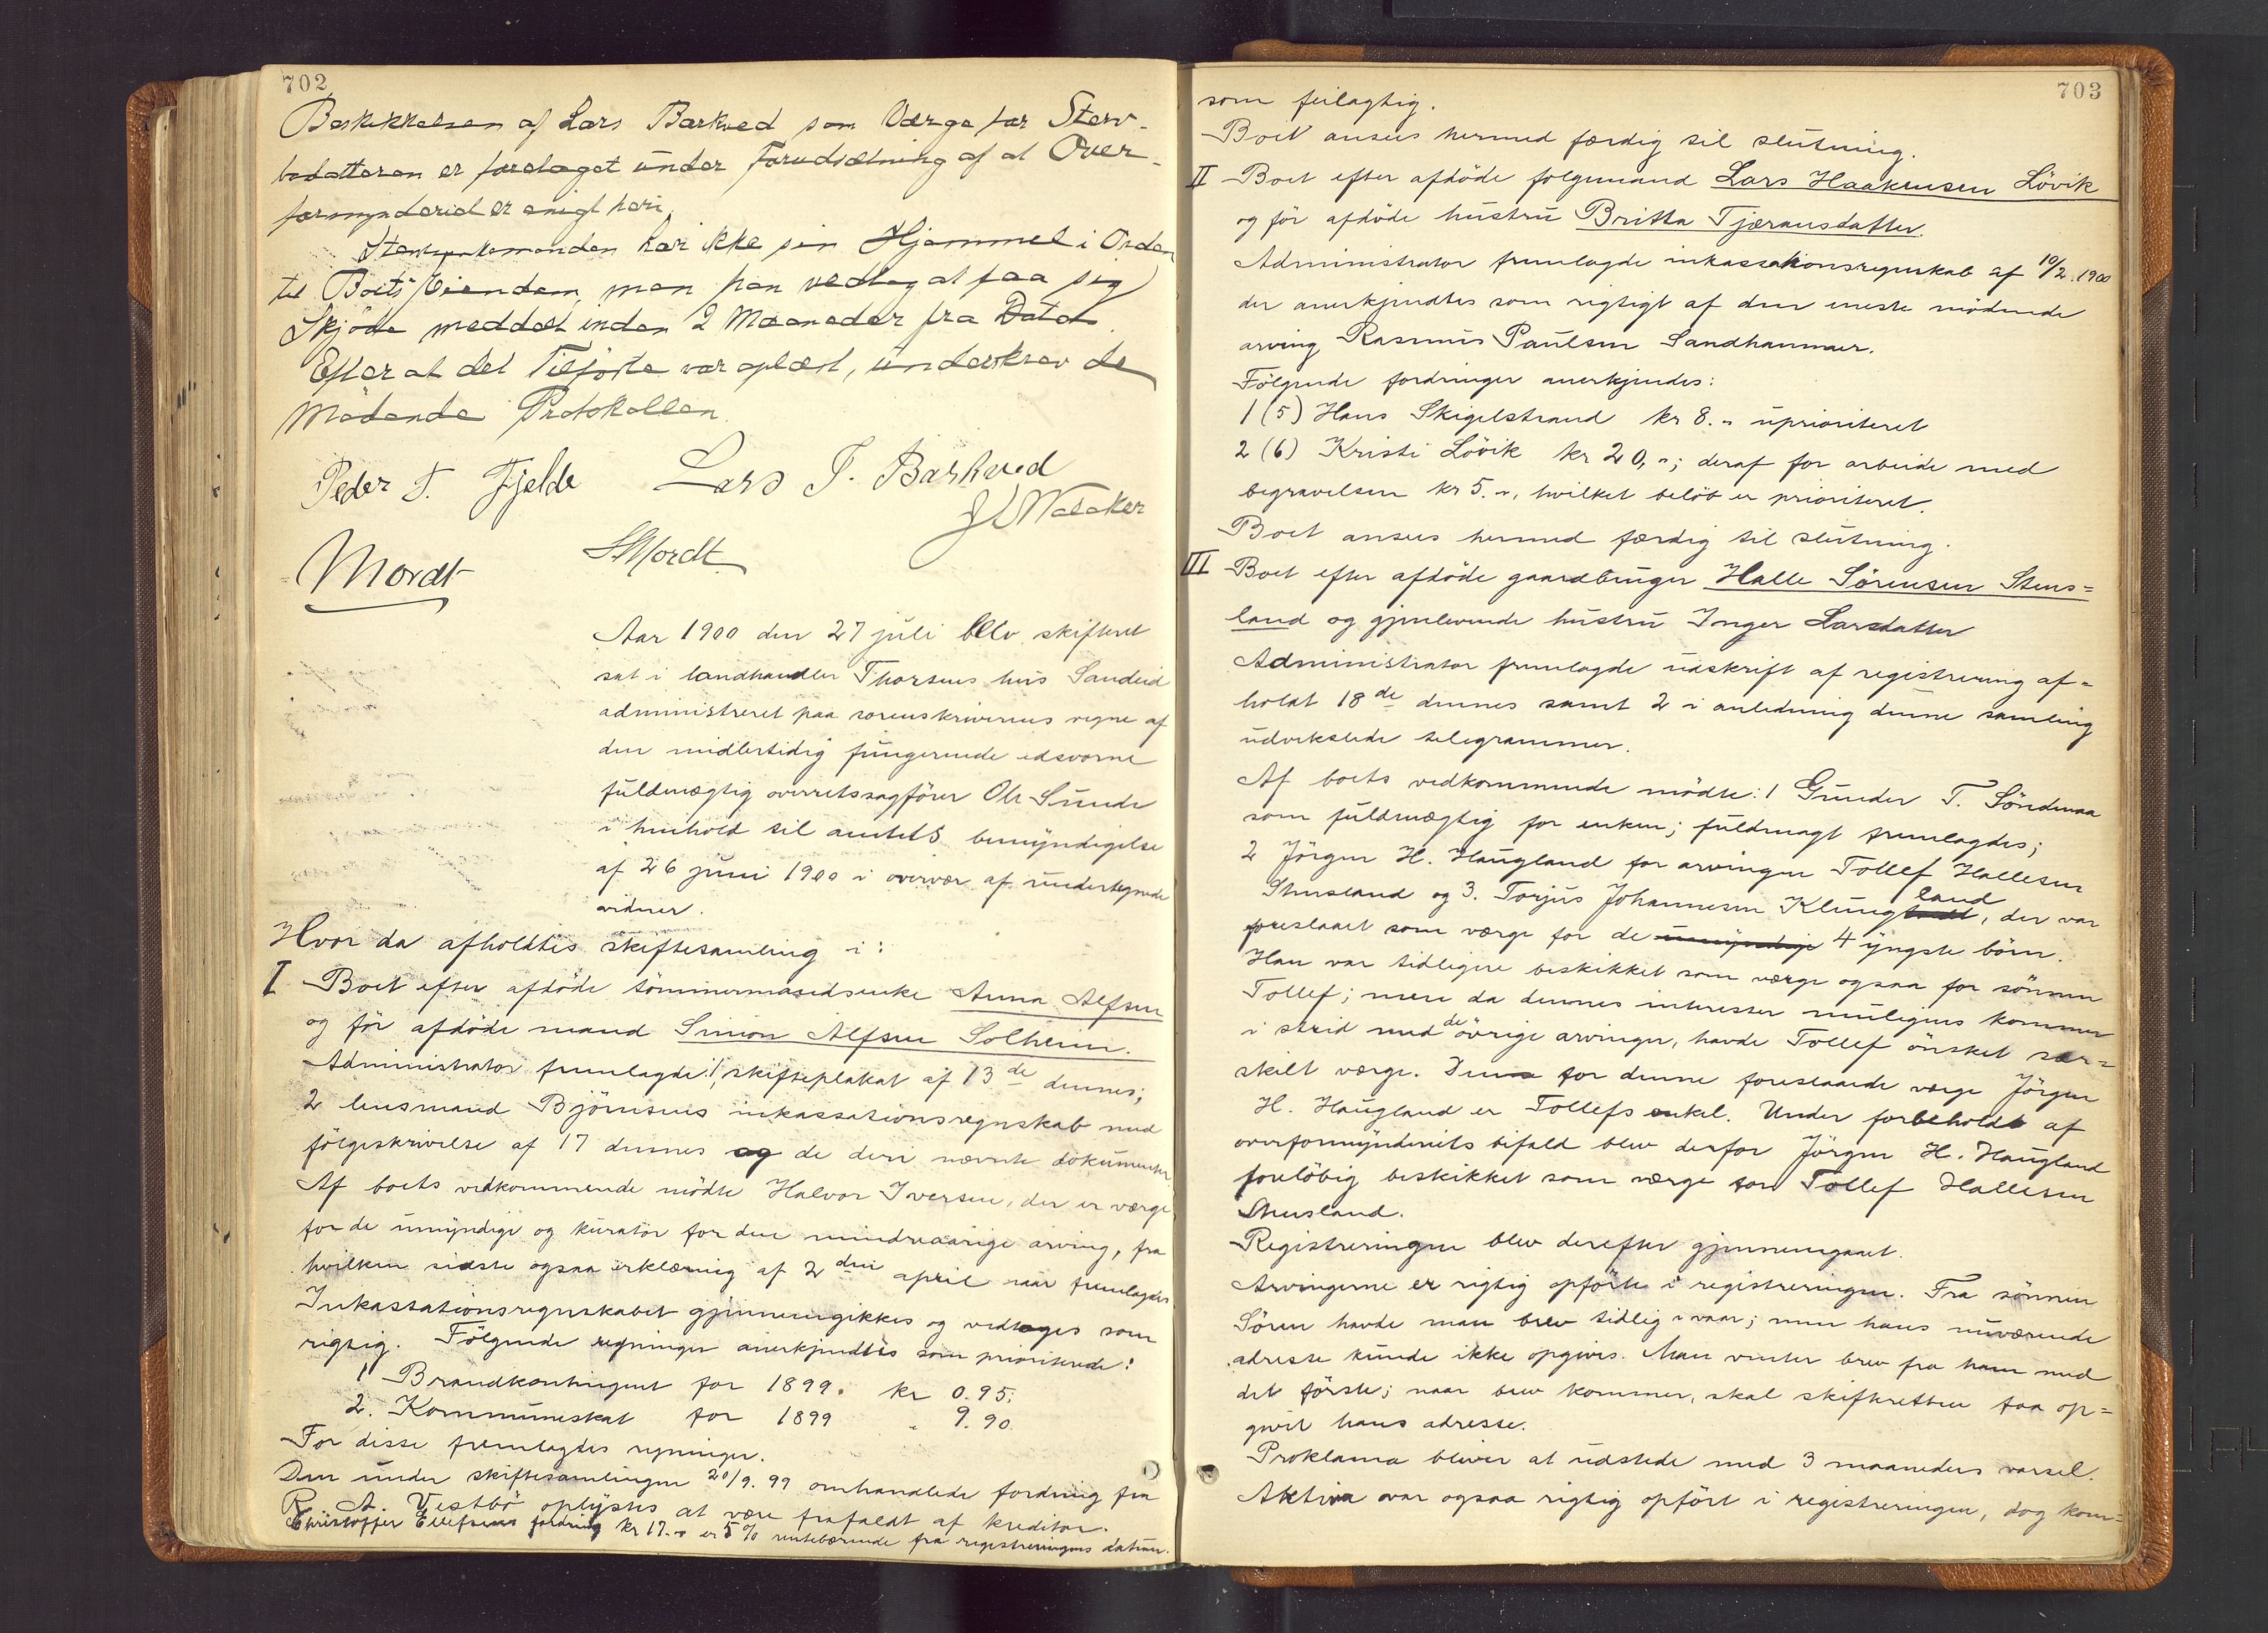 702
Beskikkelsen af Lars Barkved som Værge for Sterv-
bodatteren er foretaget under Forudsætning af at Over-
formynderiet er enigt heri.
Stervbomanden har ikke sin Hjemmel i Orden
til Boets Eiendom, men han vedtog at faa sig
Skjøde meddelt inden 2 Maaneder fra Dato.
Efter at det Tilførte var oplæst, underskrev de
Mødende Protokollen.
Peder T. Fjelde Lars T. Barkved
Mordt SMordt
Aar 1900 den 27 juli blev skifteret
sat i landhandler Thorsens hus Sandeid
administreret paa sorenskriverens vegne af
den midlertidig fungerende edsvorne
fuldmægtig overretssagfører Ole Sunde
i henhold til amtets bemyndigelse
af 26 juni 1900 i overvær af undertegnede
vidner.
Hvor da afholdtes skiftesamling i:
I Boet efter afdøde tømmermandsenke Anna Alfsen
og før afdøde mand Simon Alfsen Solheim.
Administrator fremlagde: 1, skifteplakat af 13de dennes;
2 lensmand Bjørnsens inkassationsregnskab med
følgeskrivelse af 17 dennes og de deri nævnte dokumenter.
Af boets vedkommende mødte Halvor Iversen, der er værge
for de umyndige og kurator for den mindreaarige arving, fra
hvilken sidste ogsaa erklæring af 2den april naar fremlagdes
Inkassationsregnskabet gjennemgikkes og vedtoges som
rigtig. Følgende regninger anerkjendtes som prioriterede:
1 Brandkontingent for 1899. kr 0.95.
2. Kommuneskat for 1899 " 9.90.
For disse fremlagdes regninger.
Den under skiftesamlingen 20/9.99 omhandlede fordring fra
R. A. Vestbø oplystes at være frafaldt af kreditor.
Christoffer Ellefsens fordring kr 17.- er 5 % rentebærende fra registreringens datum.
703
som feilagtig.
Boet ansees hermed færdig til slutning.
II Boet efter afdøde følgemand Lars Haakensen Løvik
og før afdøde hustru Britta Tjæransdatter.
Administrator fremlagde inkassationsregnskab af 10/2.1900
der anerkjendtes som rigtigt af den eneste mødende
arving Rasmus Paulsen Sandhammer.
Følgende fordringer anerkjendes:
1 (5) Hans Skigelstrand kr 8. " uprioriteret
2 (6) Kristi Løvik kr 20, "; deraf for arbeide med
begravelsen kr 5. ", hvilket beløb er prioriteret.
Boet ansees hermed færdig til slutning.
III Boet efter afdøde gaardbruger Halle Sørensen Stens=
land og gjenlevende hustru Inger Larsdatter
Administrator fremlagde udskrift af registrering af=
holdt 18de dennes samt 2 i anledning denne samling
udvekslede telegrammer.
Af boets vedkommende mødte: 1 Gunder T. Søndenaa
som fuldmægtig for enken; fuldmagt fremlagdes;
2 Jørgen H. Haugland for arvingen Tollef Hallesen
Stensland og 3. Torjus Johannesen Klungland, der var
foreslaaet som værge for de umyndige 4 yngste børn.
Han var tidligere beskikket som værge ogsaa for sønnen
Tollef; mere da dennes interesser muligens kommer
i strid med de øvrige arvinger, havde Tollef ønsket sær=
skilt værge. Den for denne foreslaaede værge Jørgen
H. Haugland er Tollefs onkel. Under forbehold af
overformynderiets bifald blev derfor Jørgen H. Haugland
foreløbig beskikket som værge for Tollef Hallesen
Stensland.
Registreringen blev derefter gjennemgaaet.
Arvingerne er rigtig opførte i registreringen. Fra sønnen
Søren havde man brev tidlig i vaar; men hans nuværende
adresse kunde ikke opgives. Man venter brev fra ham med
det første; naar brev kommer, skal skifteretten faa op=
givet hans adresse.
Proklama bliver at udstede med 3 maaneders varsel.
Aktiva var ogsaa rigtig opført i registreringen, dog kom=